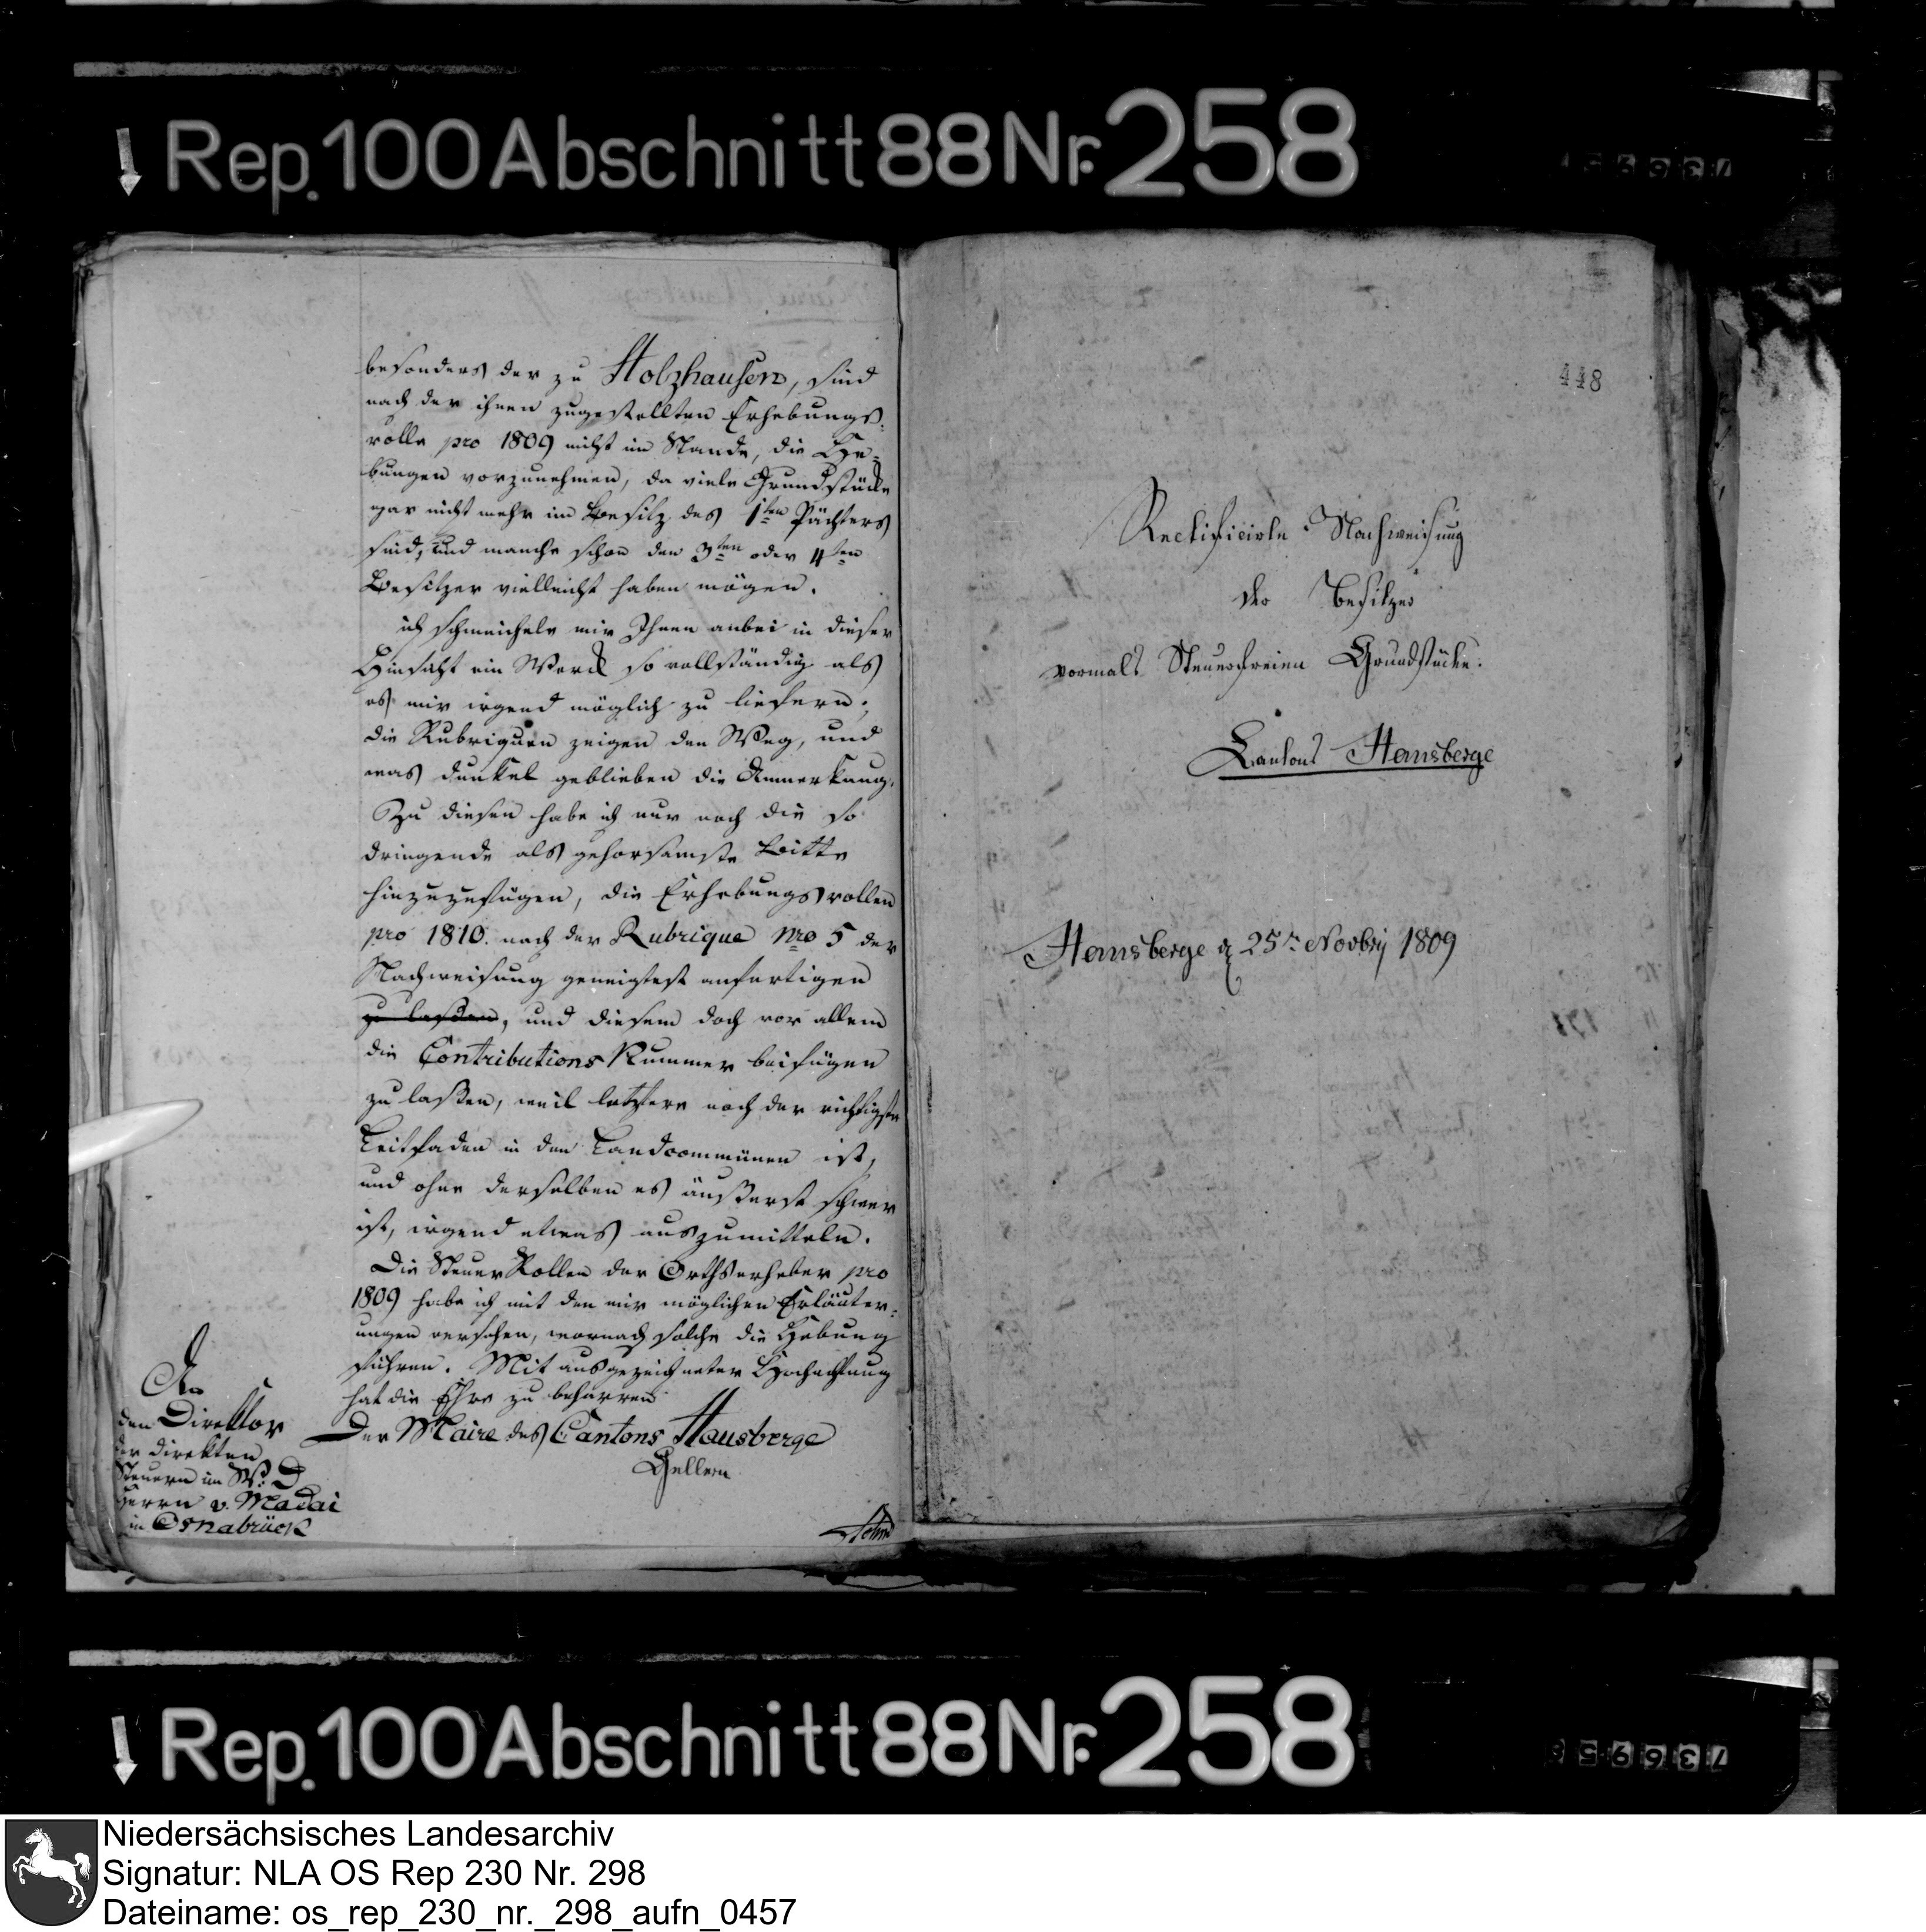 Rep. 100 Abschnitt 88 Nr. 258
besonders der zu Holzhausen, sind
nach der ihnen zugestellten Erhebungs-
rolle pro 1809 nicht im Stande, die He-
bungen vorzunehmen, da viele Grundstücke
gar nicht mehr im Besitz des 1ten Pächters
sind, und manche schon den 3ten oder 4ten
Besitzer vielleicht haben mögen.
ich schmeichele mir Ihnen anbei in dieser
Hinsicht ein Werck so vollständig als
es mir irgend möglich zu liefern;
die Rubriquen zeigen den Weg, und
was dunkel geblieben die Anmerkung.
Zu diesen habe ich nur noch die so
dringende als gehorsamste Bitte
hinzuzufügen, die Erhebungsrollen
pro 1810. nach der Rubrique Nro 5 der
Nachweisung geneigtest anfertigen
zu laßen, und diesem doch vor allem
die Contributions Nummer beifügen
zu laßen, weil letztere noch der richtigste
Leitfaden in den Landcommünen ist,
und ohne derselben es äußerst schwer
ist, irgend etwas auszumitteln.
Die Steuer Rollen der Orthserheber pro
1809 habe ich mit den mir möglichen Erläuter-
ungen versehen, wornach solche die Hebung
führen. Mit ausgezeichneter Hochachtung
hat die Ehre zu beharren
Der Maire des Cantons Hausberge
An
den Direktor
der direkten
Steuern im W. D.
Herrn v. Madai
in Osnabrück
448
Rectificirte Nachweisung
der Besitzer
vormals Steuerfreien Grundstücke.
Cantons Hausberge
Hausberge d 25n Novbrij 1809
Rep. 100 Abschnitt 88 Nr. 258
Niedersächsisches Landesarchiv
Signatur: NLA OS Rep 230 Nr. 298
Dateiname: os_rep_230_nr._298_aufn_0457